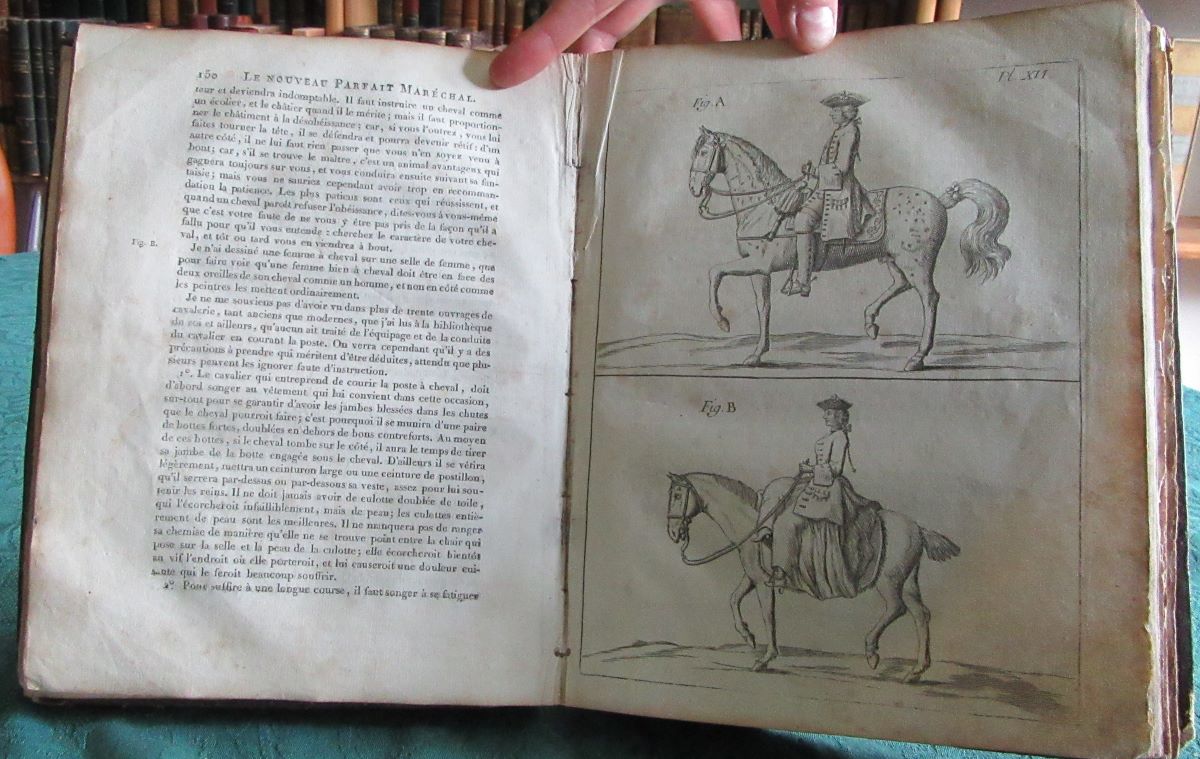 150 LE NOUVEAU PARFAIT MARÉCHAL.
teur et deviendra indomptable. Il faut instruire un cheval comme
un écolier, et le châtier quand il le mérite; mais il faut proportion-
ner le châtiment à la désobéissance; car, si vous l'outrez, vous lui
faites tourner la tête, il se défendra et pourra devenir rétif: d'un
autre côté, il ne lui faut rien passer que vous n'en soyez venu à
bout; car, s'il se trouve le maître, c'est un animal avantageux qui
gagnera toujours sur vous, et vous conduira ensuite suivant sa fan-
taisie; mais vous ne sauriez cependant avoir trop en recomman-
dation la patience. Les plus patiens sont ceux qui réussissent, et
quand un cheval paroît refuser l'obéissance, dites-vous à vous-même
que c'est votre faute de ne vous y être pas pris de la façon qu'il a
fallu pour qu'il vous entende: cherchez le caractère de votre che-
val, et tôt ou tard vous en viendrez à bout.
Fig. B.
Je n'ai dessiné une femme à cheval sur une selle de femme, que
pour faire voir qu'une femme bien à cheval doit être en face des
deux oreilles de son cheval comme un homme, et non en côté comme
les peintres les mettent ordinairement.
Je ne me souviens pas d'avoir vu dans plus de trente ouvrages de
cavalerie, tant anciens que modernes, que j'ai lus à la bibliothèque
du roi et ailleurs, qu'aucun ait traité de l'équipage et de la conduite
du cavalier en courant la poste. On verra cependant qu'il y a des
précautions à prendre qui méritent d'être déduites, attendu que plu-
sieurs peuvent les ignorer faute d'instruction.
1º. Le cavalier qui entreprend de courir la poste à cheval, doit
d'abord songer au vêtement qui lui convient dans cette occasion,
sur-tout pour se garantir d'avoir les jambes blessées dans les chutes
que le cheval pourroit faire; c'est pourquoi il se munira d'une paire
de bottes fortes, doublées en dehors de bons contreforts. Au moyen
de ces bottes, si le cheval tombe sur le côté, il aura le temps de tirer
sa jambe de la botte engagée sous le cheval. D'ailleurs il se vêtira
légèrement, mettra un ceinturon large ou une ceinture de postillon,
qu'il serrera par-dessus ou par-dessous sa veste, assez pour lui sou-
tenir les reins. Il ne doit jamais avoir de culotte doublée de toile,
qui l'écorcheroit infailliblement, mais de peau; les culottes entiè-
rement de peau sont les meilleures. Il ne manquera pas de ranger
sa chemise de manière qu'elle ne se trouve point entre la chair qui
pose sur la selle et la peau de la culotte; elle écorcheroit bientôt
au vif l'endroit où elle porteroit, et lui causeroit une douleur cui-
sante qui le feroit beaucoup souffrir.
2º. Pour suffire à une longue course, il faut songer à se fatiguer
Pl. XII
Fig. A
Fig. B